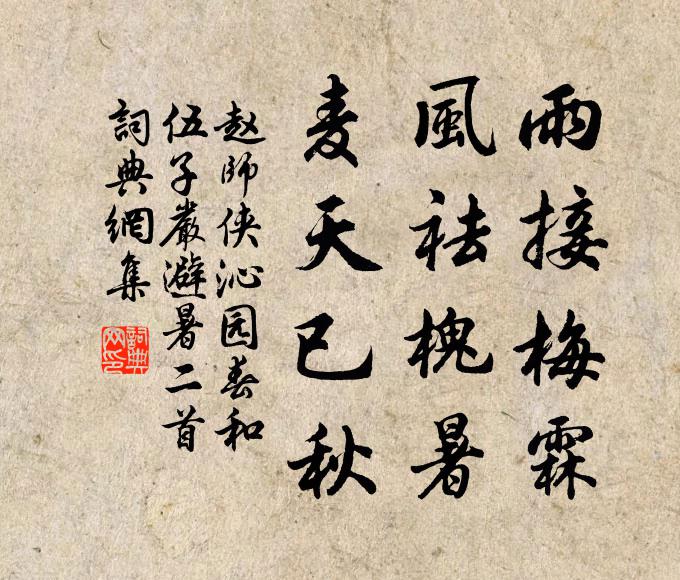 雨接梅霖
風祛槐暑
麦天已秋
赵師侠沁园春和
伍子嚴避暑二首
詞典網集
詞典網印